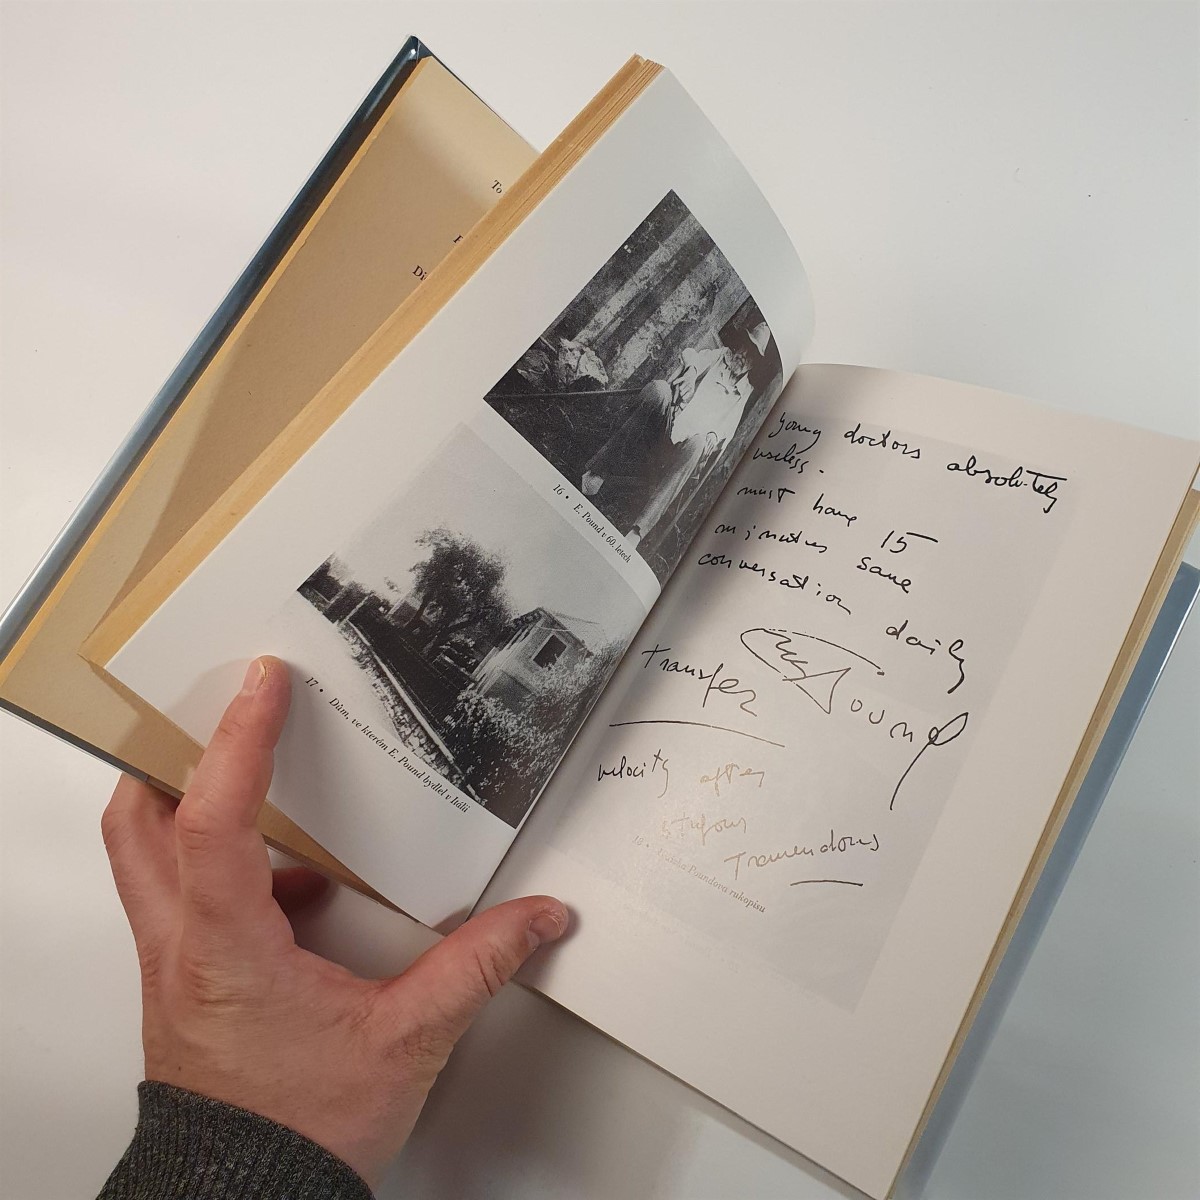 To
Di
16 • E. Pound v 60. letech
17 • Dům, ve kterém E. Pound bydlel v Itálii
young doctors absolutely
useless.
must have 15
minutes sane
conversation daily
Transfer
velocity after
stupour
Tremendous
18 • Poundova rukopisu